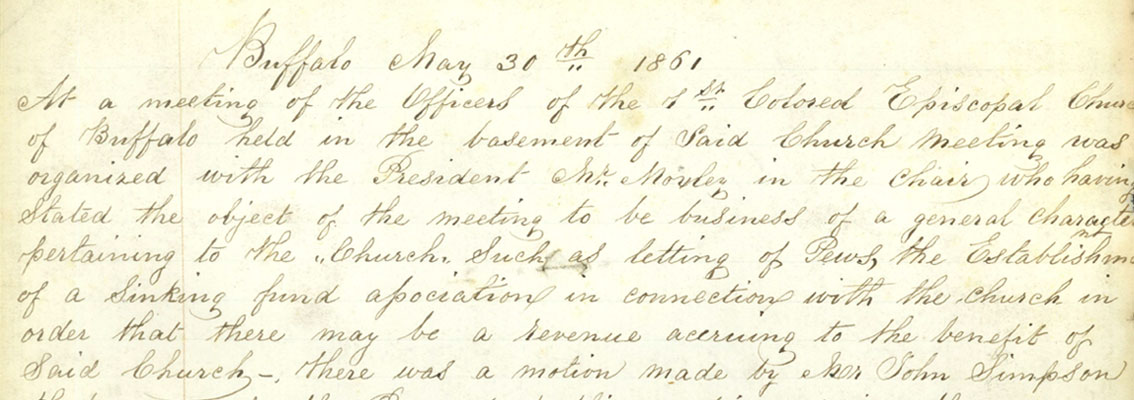 Buffalo May 30th 1861
At a meeting of the Officers of the 1st Colored Episcopal Churc
of Buffalo held in the basement of Said Church meeting was
organized with the President Mr. in the Chair who having
Stated the object of the meeting to be business of a general character
pertaining to the "Church" Such as letting of Pews, the Establishme
of a Sinking fund association in connection with the church in
order that there may be a revenue accruing to the benefit of
Said Church—, there was a motion made by Mr John Simpson